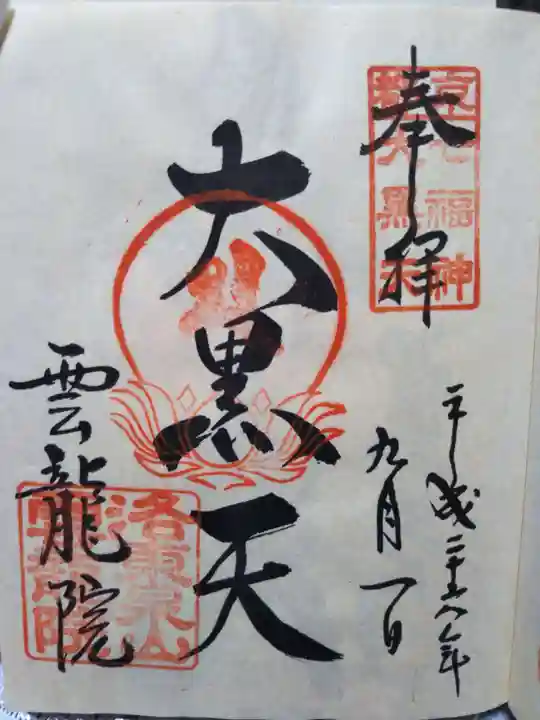 奉拝
京七福神
大黒天
平成二十年
九月一日
大黒天
雲龍院
洛東泉山
雲龍院